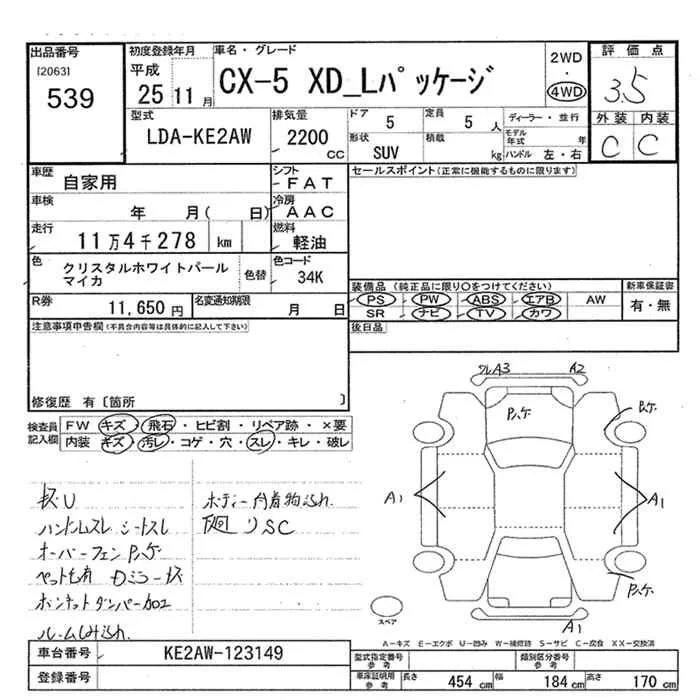 出品番号 初度登録年月 車名・グレード 評価点
[2063] 平成 CX-5 XD_Lパッケージ 2WD
・
539 25 11月 4WD 3.5
型式 排気量 ドア 定員 ディーラー・並行 外装 内装
LDA-KE2AW 2200 CC 5 5 人 モデル年式 年 C C
形状 積載
SUV kg ハンドル 左・右
車歴 自家用 シフト FAT セールスポイント(正常に機能するものに限ります)
車検 年 月( 日) 冷房 AAC
走行 11万4千278 km 燃料 軽油
色 クリスタルホワイトパール 色替 色コード 34K
マイカ
装備品(純正品に限り○をつけてください) 新車保証書
R券 11,650円 名変通知期限 月 日 PS PW ABS エアB AW 有・無
SR ナビ TV カワ
注意事項申告欄(不具合内容等は具体的に記入して下さい) 後日品
修復歴 有〔箇所 〕
検査員 FW キズ・飛石・ヒビ割・リペア跡・×要
記入欄 内装 キズ・汚レ・コゲ・穴・スレ・キレ・破レ
A3 A2
P.ケ.
P.ケ.
A1 A1
P.ケ.
A1
ハンドルスレ シートスレ
廻りSC
オーバーフェンP.ケ
ルームしみ汚れ.
スペア
A-キズ E-エクボ U-凹み W-補修跡 S-サビ C-腐食 XX-交換済
車台番号 KE2AW-123149 型式指定番号 参考 類別区分番号 参考
登録番号 車庫証明用 参考 長さ 454 cm 幅 184 cm 高さ 170 cm